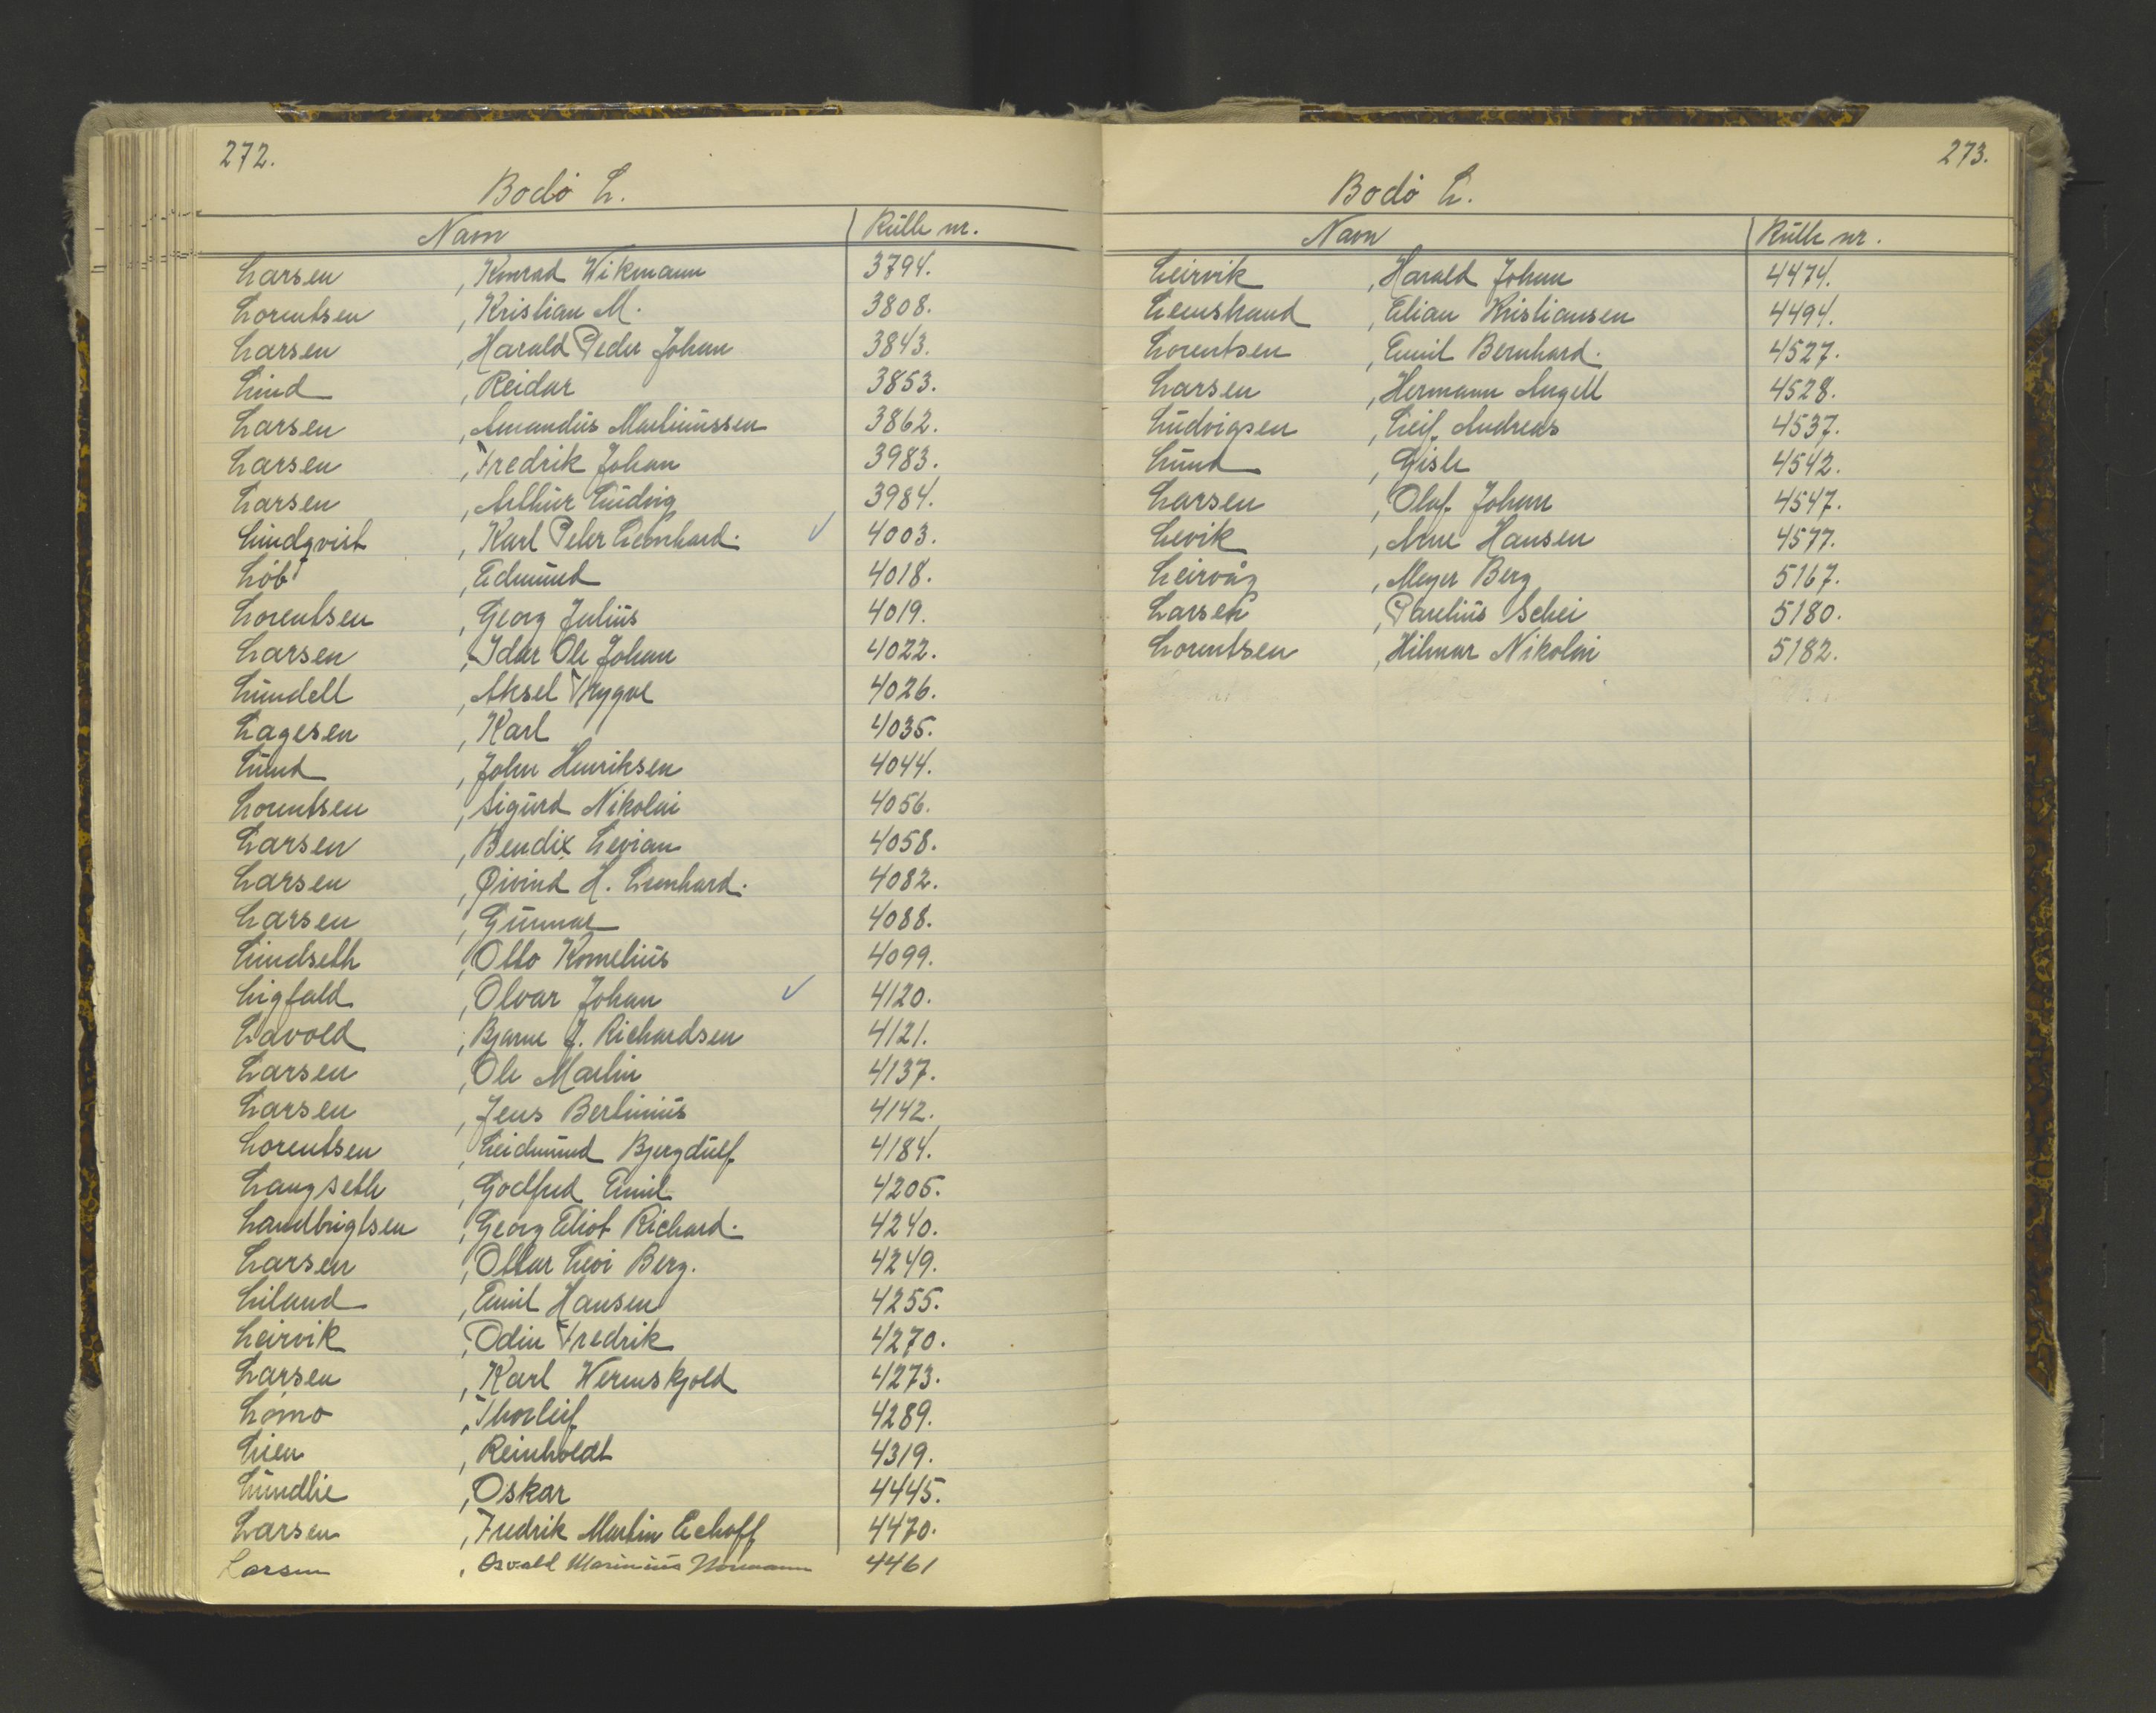 272.
Bodö L.
Navn Rulle nr.
Larsen , Konrad Wikmann 3794.
Lorentsen , Kristian M. 3808.
Larsen , Harald Peder Johan 3843.
Lind , Reidar 3853.
Larsen , Amandus Martinussen 3862.
Larsen , Fredrik Johan 3983.
Larsen , Arthur Ludvig 3984.
Lindqvist , Karl Peter Leonhard. ✓ 4003.
Löbt , Edmund 4018.
Lorentsen , Georg Julius 4019.
Larsen , Idar Ole Johan 4022.
Lundell , Aksel Trygve 4026.
Lagesen , Karl 4035.
Lund , John Henriksen 4044.
Lorentsen , Sigurd Nikolai 4056.
Larsen , Bendix Levian 4058.
Larsen , Øivind H. Leonhard. 4082.
Larsen , Gunnar 4088.
Lindseth , Otto Kornelius 4099.
Ligfald , Olvar Johan ✓ 4120.
Lavold , Bjarne J. Richardsen 4121.
Larsen , Ole Martin 4137.
Larsen , Jens Bertinius 4142.
Lorentsen , Leidmund Bjergdulf 4184.
Langseth , Godfred Emil 4205.
Landbrigtsen , Georg Eliot Richard. 4240.
Larsen , Ottar Levi Berg. 4249.
Liland , Emil Hansen 4255.
Leirvik , Odin Fredrik 4270.
Larsen , Karl Wermskjold 4273.
Lömo , Thorleif 4289.
Lien , Reinholdt 4319.
Lundlie , Oskar 4445.
Larsen , Fredrik Martin Echoff 4470.
Larsen , Osvald Marinius Normann 4461
273.
Bodö L.
Navn Rulle nr.
Leirvik , Harald Johan 4474.
Lernstrand , Elian Kristiansen 4494.
Lorentsen , Emil Bernhard. 4527.
Larsen , Hermann Angell 4528.
Ludvigsen , Leif Andreas 4537.
Lund , Gisle 4542.
Larsen , Olaf Johan 4547.
Levik , Arne Hansen 4577.
Leirvåg , Meyer Berg 5167.
Larsen , Parelius Schei 5180.
Lorentsen , Hilmar Nikolai 5182.